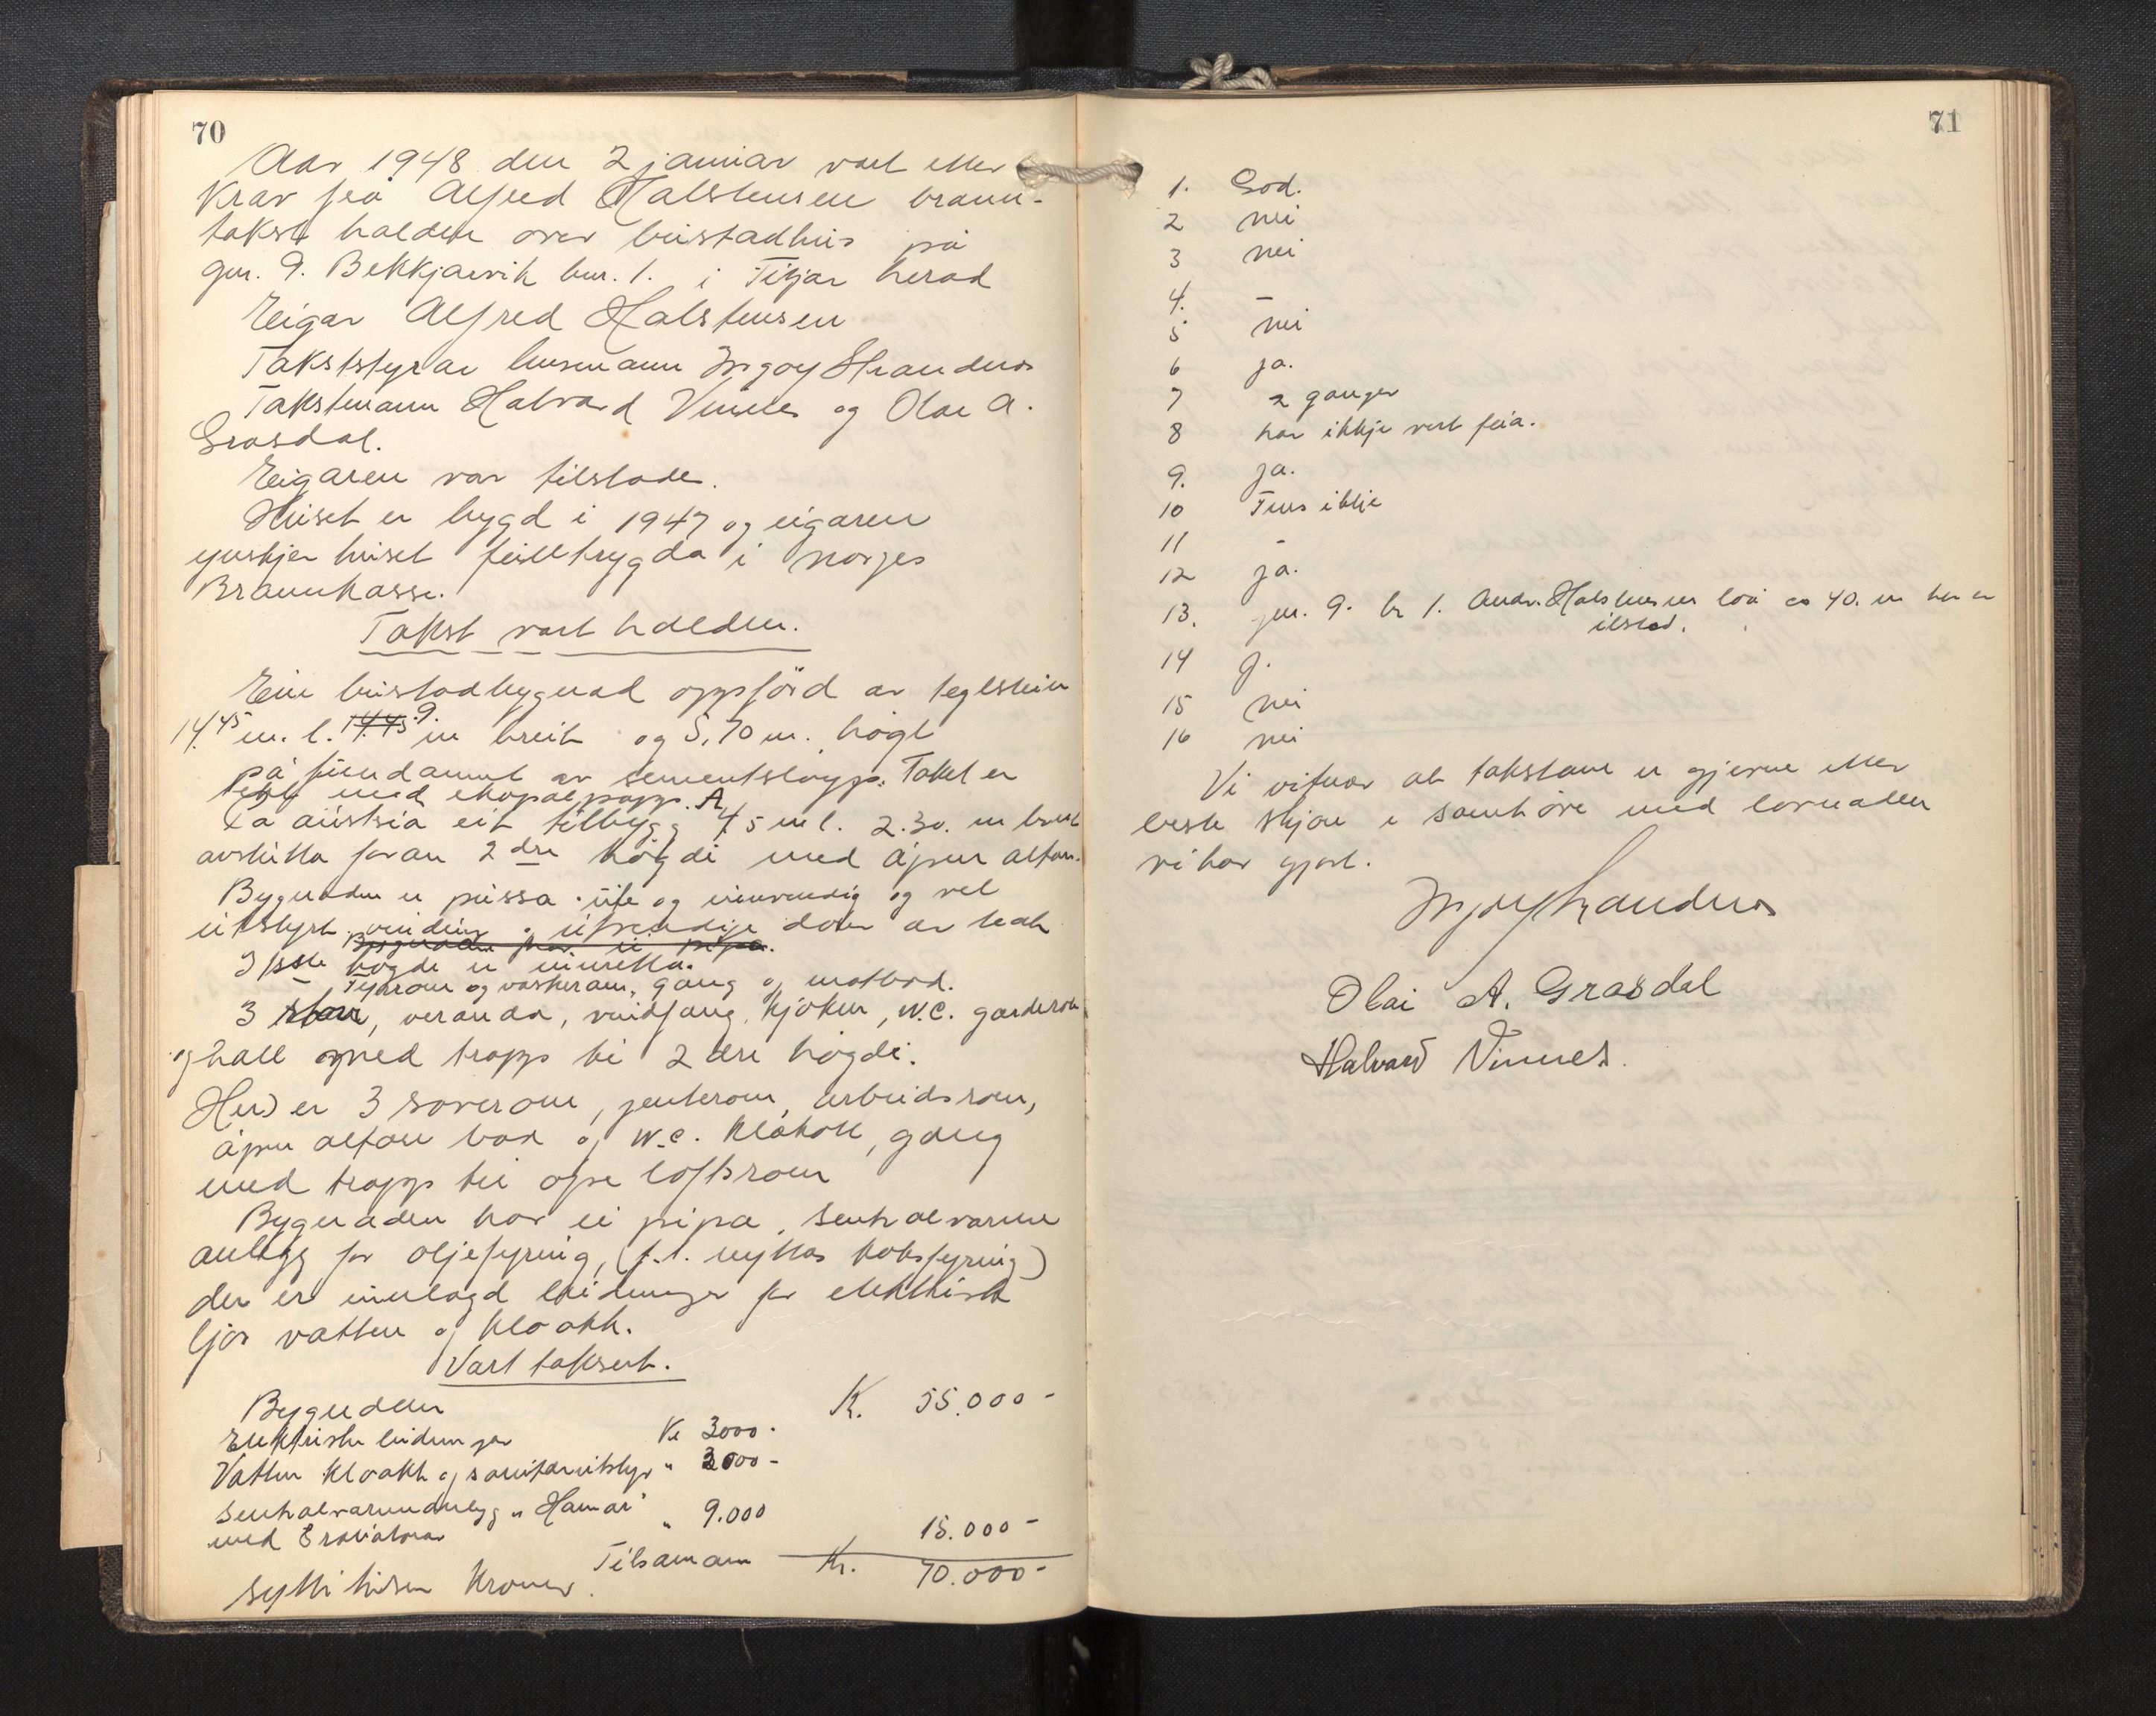 70
Aar 1948 den 2 januar vart etter
krav frå Alfred Halstensen brann-
takst halden over bustadhus på
gnr. 9. Bekkjarvik bnr. 1. i Fitjar herad
Eigar Alfred Halstensen
Takststyrar lensmann Ingolf Strandenes
Takstmann Halvard Vinnes og Olai A.
Grasdal.
Eigaren var tilstade.
Huset er bygd i 1947 og eigaren
ynskjer huset fulltrygda i Norges
Brannkasse.
Takst vart halden.
Ein bustadbygnad oppförd av teglstein
14.45 m. l. 14.45 9. m breit og 5,70 m. högt
på fundament av sementstøypp. Taket er
tekt med shapalpapp. A
På austsia eit tilbygg 4,5 m l. 2.30. m breit
avslutta foran 2dre högdi med åpen altan.
Bygnaden er pussa ute og innvendig og vel
utstyrt. vindings og utvendige dører av teak
Bygnaden har ei pipa.
I 1ste högde er innretta.
Fyrrom og vaskerom, gang og matbod.
3 stover, veranda, vindfang, kjøken, W.C. garderobe
og hall med trapp til 2dre högdi.
Her er 3 soverom, jenterom, arbeidsrom,
åpen altan bad og W.C. klåkott, gang
med trapp til ope loftsrom
Bygnaden har ei pipa, sentralvarme
anlegg for oljefyring, (f.t. nyttas koksfyring)
der er innlagd leidninger for elektrisk
ljos vatten og kloakk.
Vart taksert.
Bygnaden Kr. 55.000-
Elektriske leidninger Kr 3000-
Vatten kloakk og sanitærutstyr " 3000-
Sentralvarmeanlegg "Hamar"
med Eraviatorar " 9.000 15.000-
Tilsamann Kr. 70.000-
Sytti tusen kroner.
71
1. God.
2 nei
3 nei
4. –
5 nei
6 ja.
7 2 ganger
8 har ikkje vert feia.
9. ja.
10 Fins ikkje
11 -
12 ja.
13. gnr. 9. br 1. Andr. Halstensen löå ca 40. m her er
ilstad.
14 J.
15 nei
16 nei
Vi vitnar at takstane er gjevne etter
beste skjøn i samhöve med lovnaden
vi har gjort.
Ingolf Strandenes
Olai A. Grasdal
Halvard Vinnes.